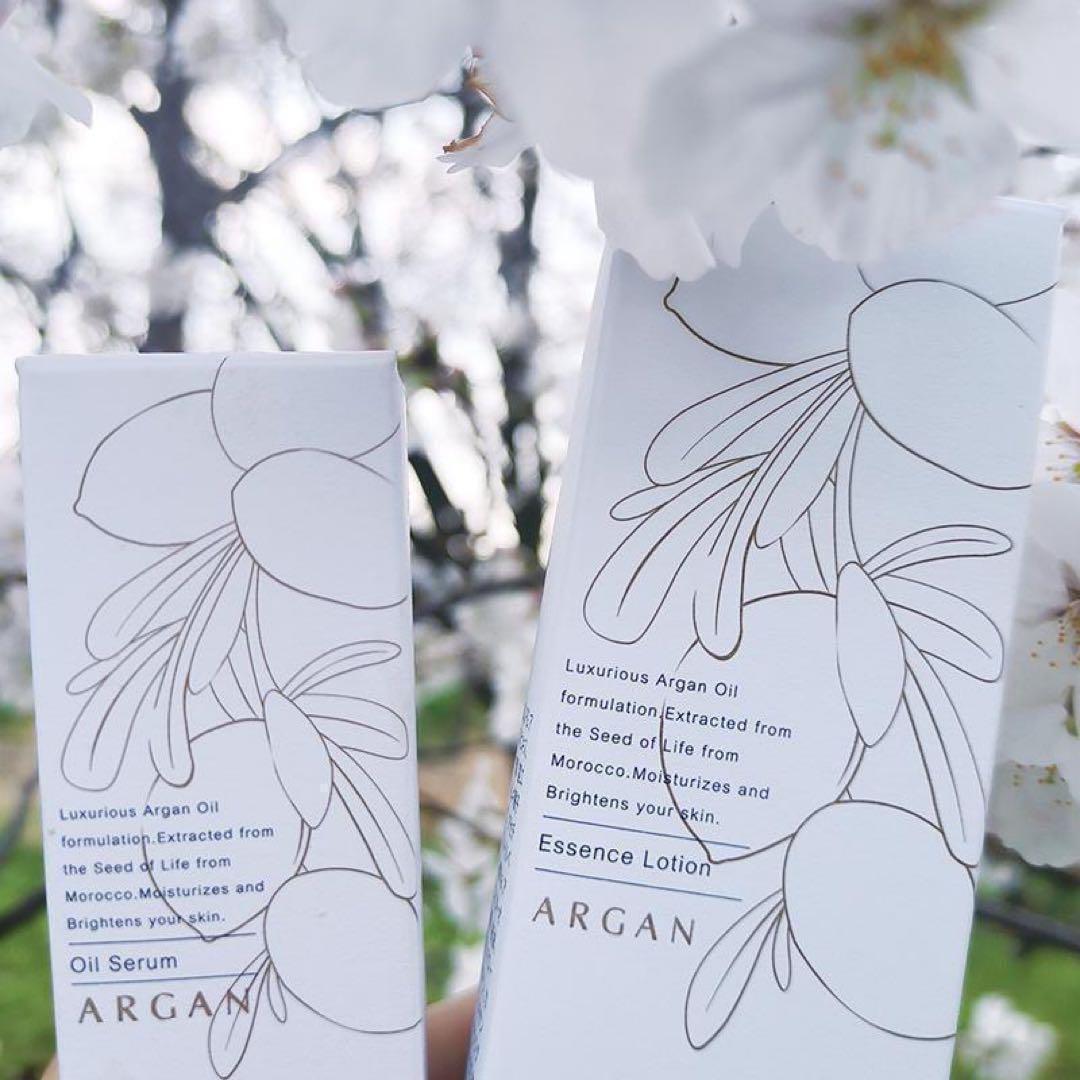 Luxurious Argan Oil
formulation.Extracted from
the Seed of Life from
Morocco.Moisturizes and
Brightens your skin.
Oil Serum
ARGAN
Luxurious Argan Oil
formulation.Extracted from
the Seed of Life from
Morocco.Moisturizes and
Brightens your skin.
Essence Lotion
ARGAN